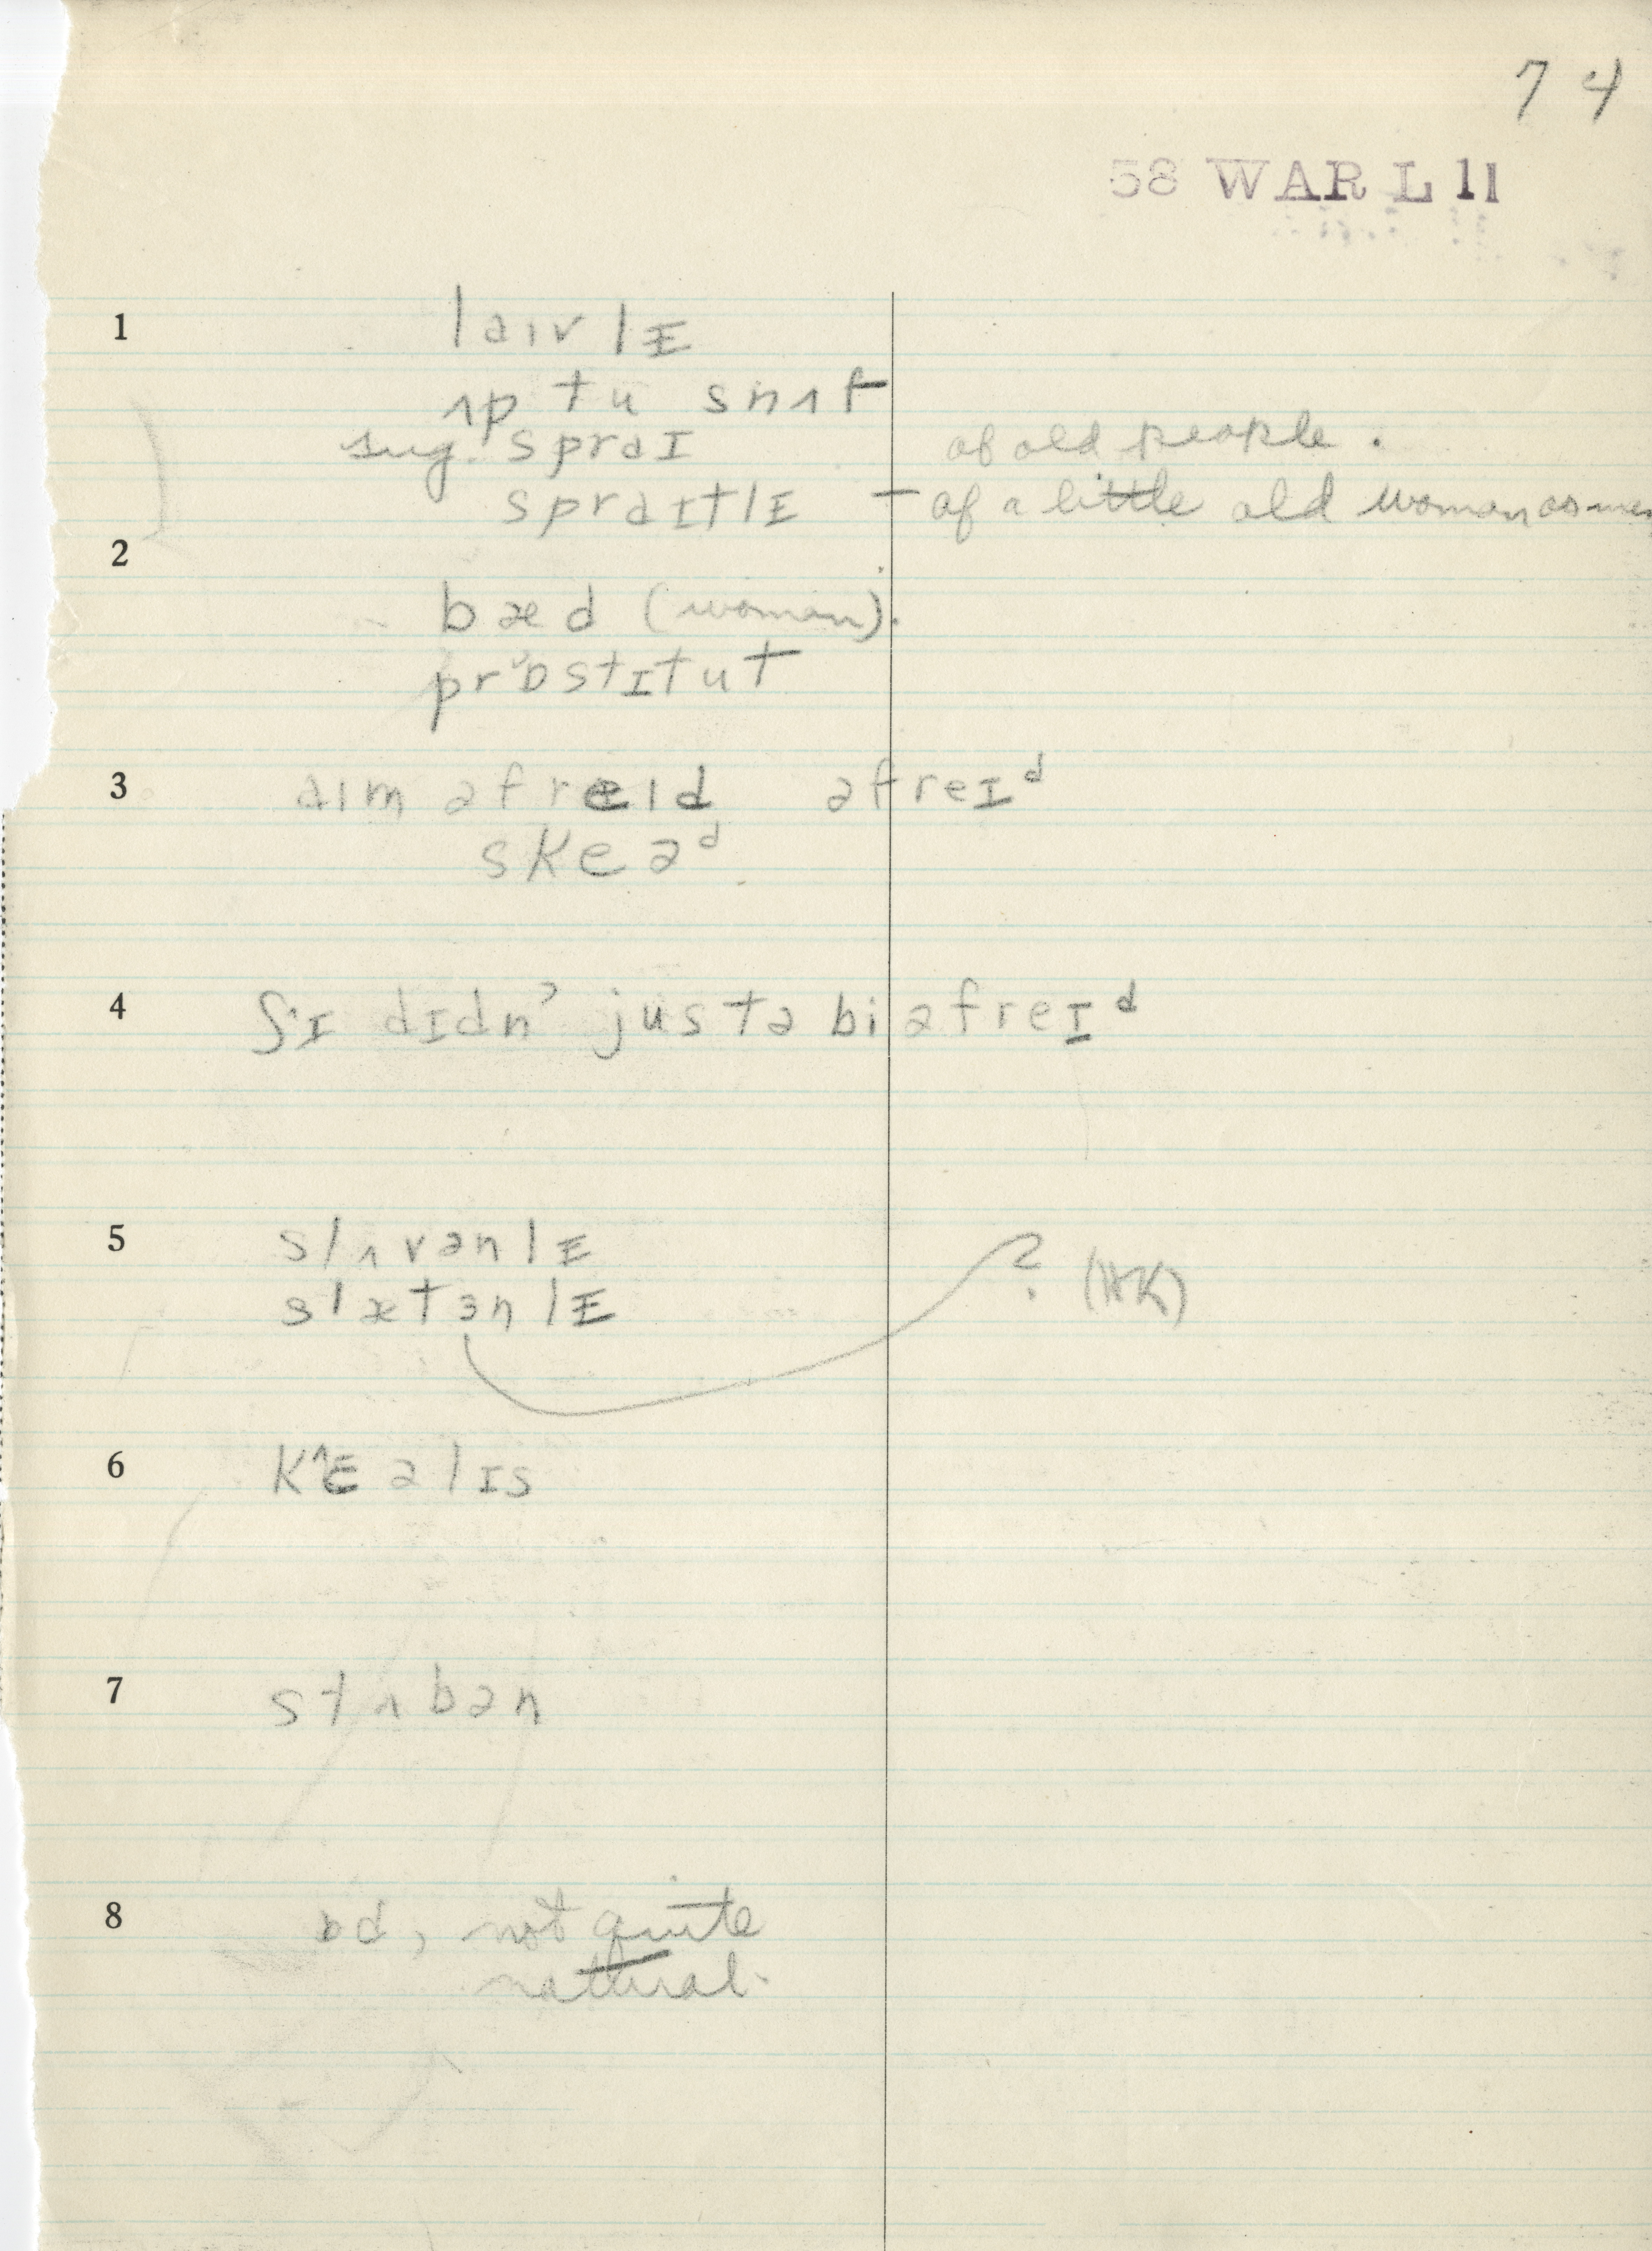 74
58 WAR L 11
1 laɪvlɪ
ʌp tu snʌf
sug. spraɪ of old people.
spraɪtlɪ – of a little old woman
2
bæd (woman).
prɒ'stɪtut
3 aɪm əfreɪd əfreɪᵈ
skeəᵈ
4 ʃɪ dɪdn' justə bi əfreɪᵈ
5 slʌvənlɪ
slætɜnlɪ ? (HK)
6 kɛəlɪs
7 stʌbən
8 ɒd, not quite
natural.